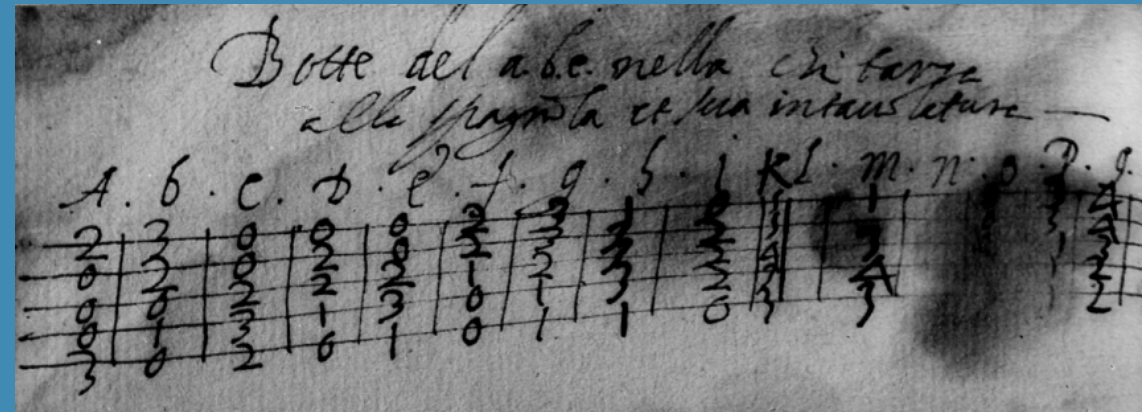 Botte del a.b.c. nella chitarra
alla spagnola et sua intavolatura
A . b . c . D . e . f . g . h . i K l . m . n . o . p . q.
2 3 0 0 0 2 3 1 0 1 1 3 4
0 2 0 2 0 2 3 3 2 3 3 4
0 0 2 2 2 1 2 3 2 4 1 3
0 1 3 1 3 0 1 3 2 3 4 1 2
3 0 2 0 1 0 1 1 0 3 3 1 2